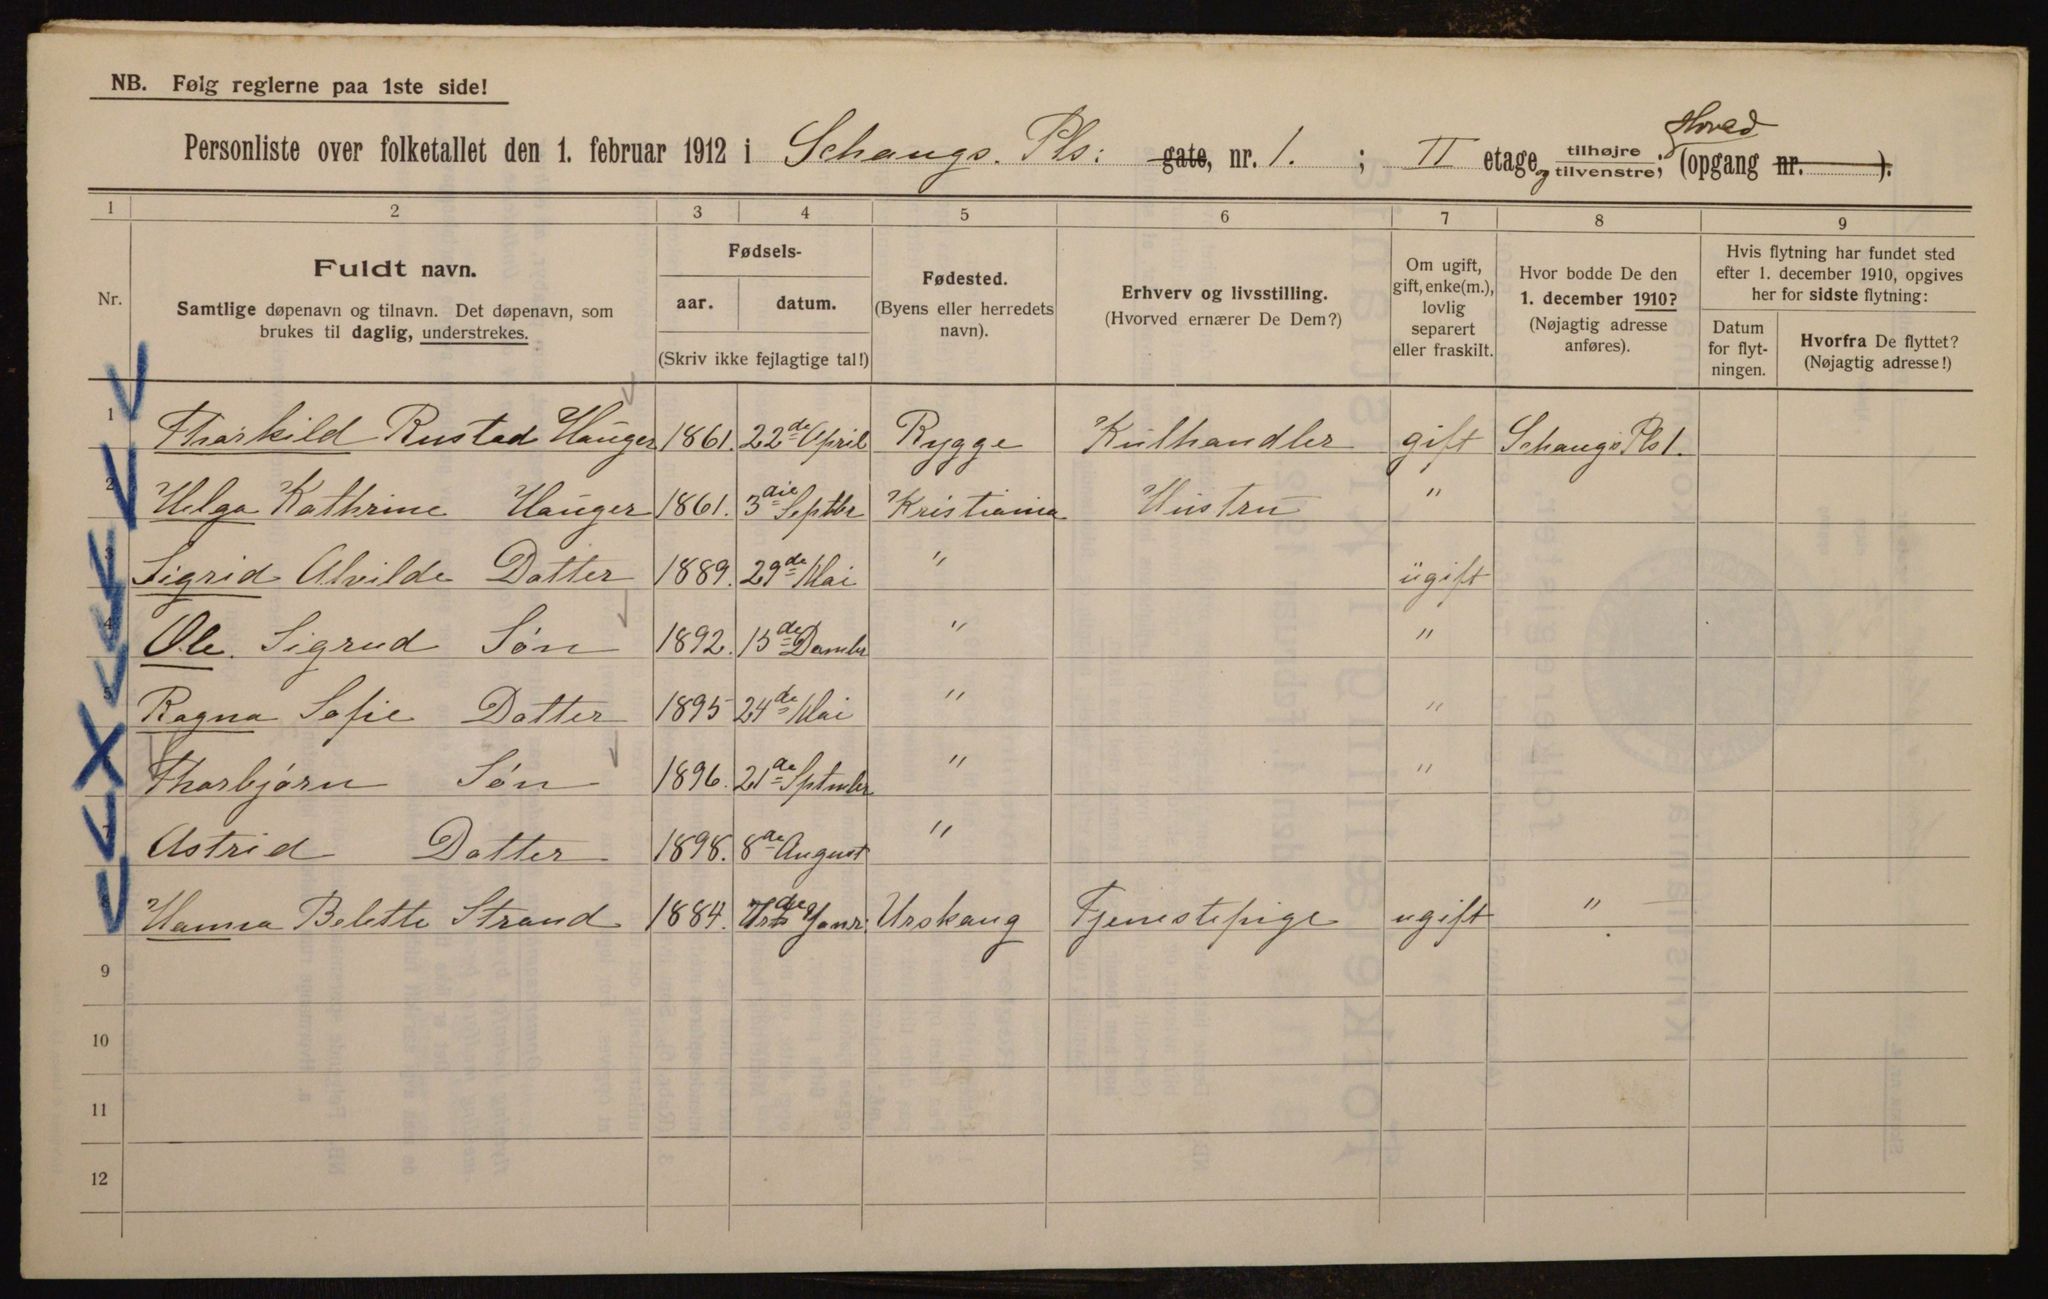 NB. Følg reglerne paa 1ste side!
Hoved
Personliste over folketallet den 1. februar 1912 i Schaugs. Pls: gate, nr. 1. ; II etage og tilhøjre tilvenstre; (opgang nr. ).
1 2 3 4 5 6 7 8 9
Nr.
Fuldt navn.
Samtlige døpenavn og tilnavn. Det døpenavn, som
brukes til daglig, understrekes.
Fødsels-
aar. datum.
(Skriv ikke fejlagtige tal!)
Fødested.
(Byens eller herredets
navn).
Erhverv og livsstilling.
(Hvorved ernærer De Dem?)
Om ugift,
gift, enke(m.),
lovlig
separert
eller fraskilt.
Hvor bodde De den
1. december 1910?
(Nøjagtig adresse
anføres).
Hvis flytning har fundet sted
efter 1. december 1910, opgives
her for sidste flytning:
Datum
for flyt-
ningen.
Hvorfra De flyttet?
(Nøjagtig adresse!)
1 Thorkild Rustad Hauger 1861. 22de April Rygge Kulhandler gift Schaugs Pls 1.
2 Helga Kathrine Hauger 1861. 3die Septbr Kristiania Hustru "
3 Sigrid Alvilde Datter 1889. 29de Mai " ugift
4 Ole. Sigrud Søn 1892. 15de " "
5 Ragna Sofie Datter 1895 24de Mai " "
Thorbjørn Søn 1896. 21de Sptmbr " "
7 Astrid Datter 1898. 8de August "
Hanna Belette Strand 1884. Janr: Urskaug Tjenestepige ugift "
9
10
11
12